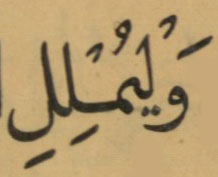 وَلْيُمْلِلِ